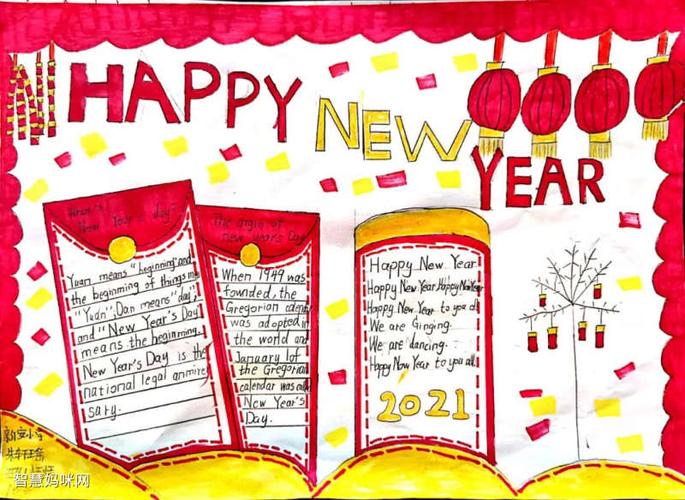 HAPPY
NEW
YEAR
New Year's day
The origin of
new year's Day
Yuan means "beginning" and
the beginning of things in
"Yuan"; Dan means "day";
and "New Year's Day
means the beginning.
New Year's Day is the
national legal
sary.
When 1949 was
founded, the
Gregorian
was adopted in
the world and
January 1of
the Gregorian
calendar was
New Year's
Day.
Happy New Year
Happy New Year Happy New Year
Happy New Year to you
We are Ginging.
We are dancing.
Happy New Year to you all.
2021
智慧妈咪网